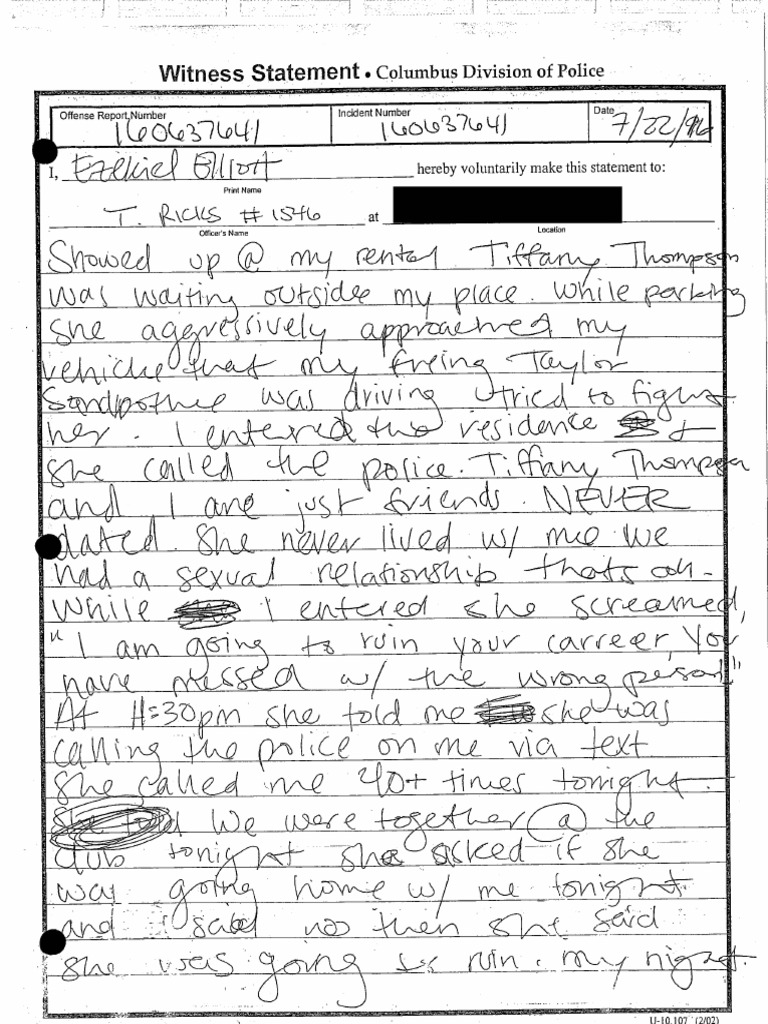 Witness Statement • Columbus Division of Police
Offense Report Number
160637641
Incident Number
160637641
Date 7/22/16
I, Ezekiel Elliott hereby voluntarily make this statement to:
Print Name
T. RICKS # 1546 at
Officer's Name
Location
Showed up @ my rental Tiffany Thompson
was waiting outside my place. While parking
she aggressively approached my
vehicle that my freing Taylor
was driving & tried to fight
her. I entered the residence &
she called the police. Tiffany Thompson
and I are just friends. NEVER
dated. She never lived w/ me we
had a sexual relationship thats all.
While I entered she screamed,
"I am going to ruin your carreer, You
have messed w/ the wrong person."
At 11:30pm she told me she was
calling the police on me via text
She called me 40+ times tonight.
We were together @ the
club tonight she asked if she
was going home w/ me tonight
and I said no then she said
she was going to ruin my night.
U-10.107 (2/02)